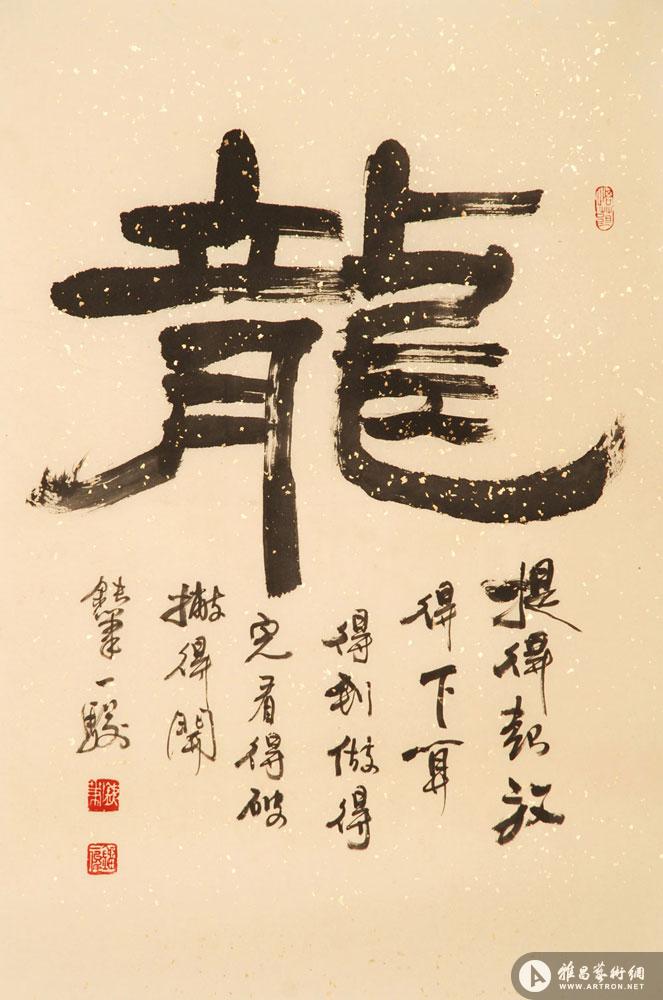 龍
提得起放
得下算
得到做得
完看得破
撇得開
雅昌藝術網
WWW.ARTRON.NET